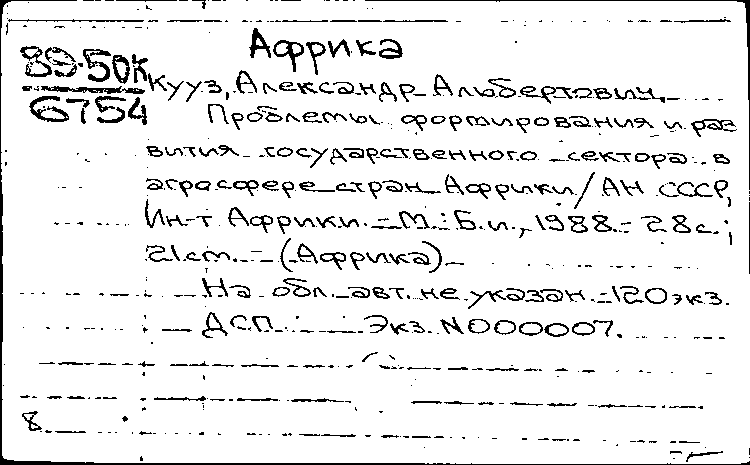 Африка
89-50К
6754
Кууз, Александр Альбертович.
Проблемы формирования и раз
вития государственного сектора в
аграсфере стран Африки / АН СССР,
Ин-т Африки. - М.: Б.и., 1988. - 28 с.;
21 см. - (Африка)
На обл. авт. не указан. - 120 экз.
ДСП. Экз. N000007.
8